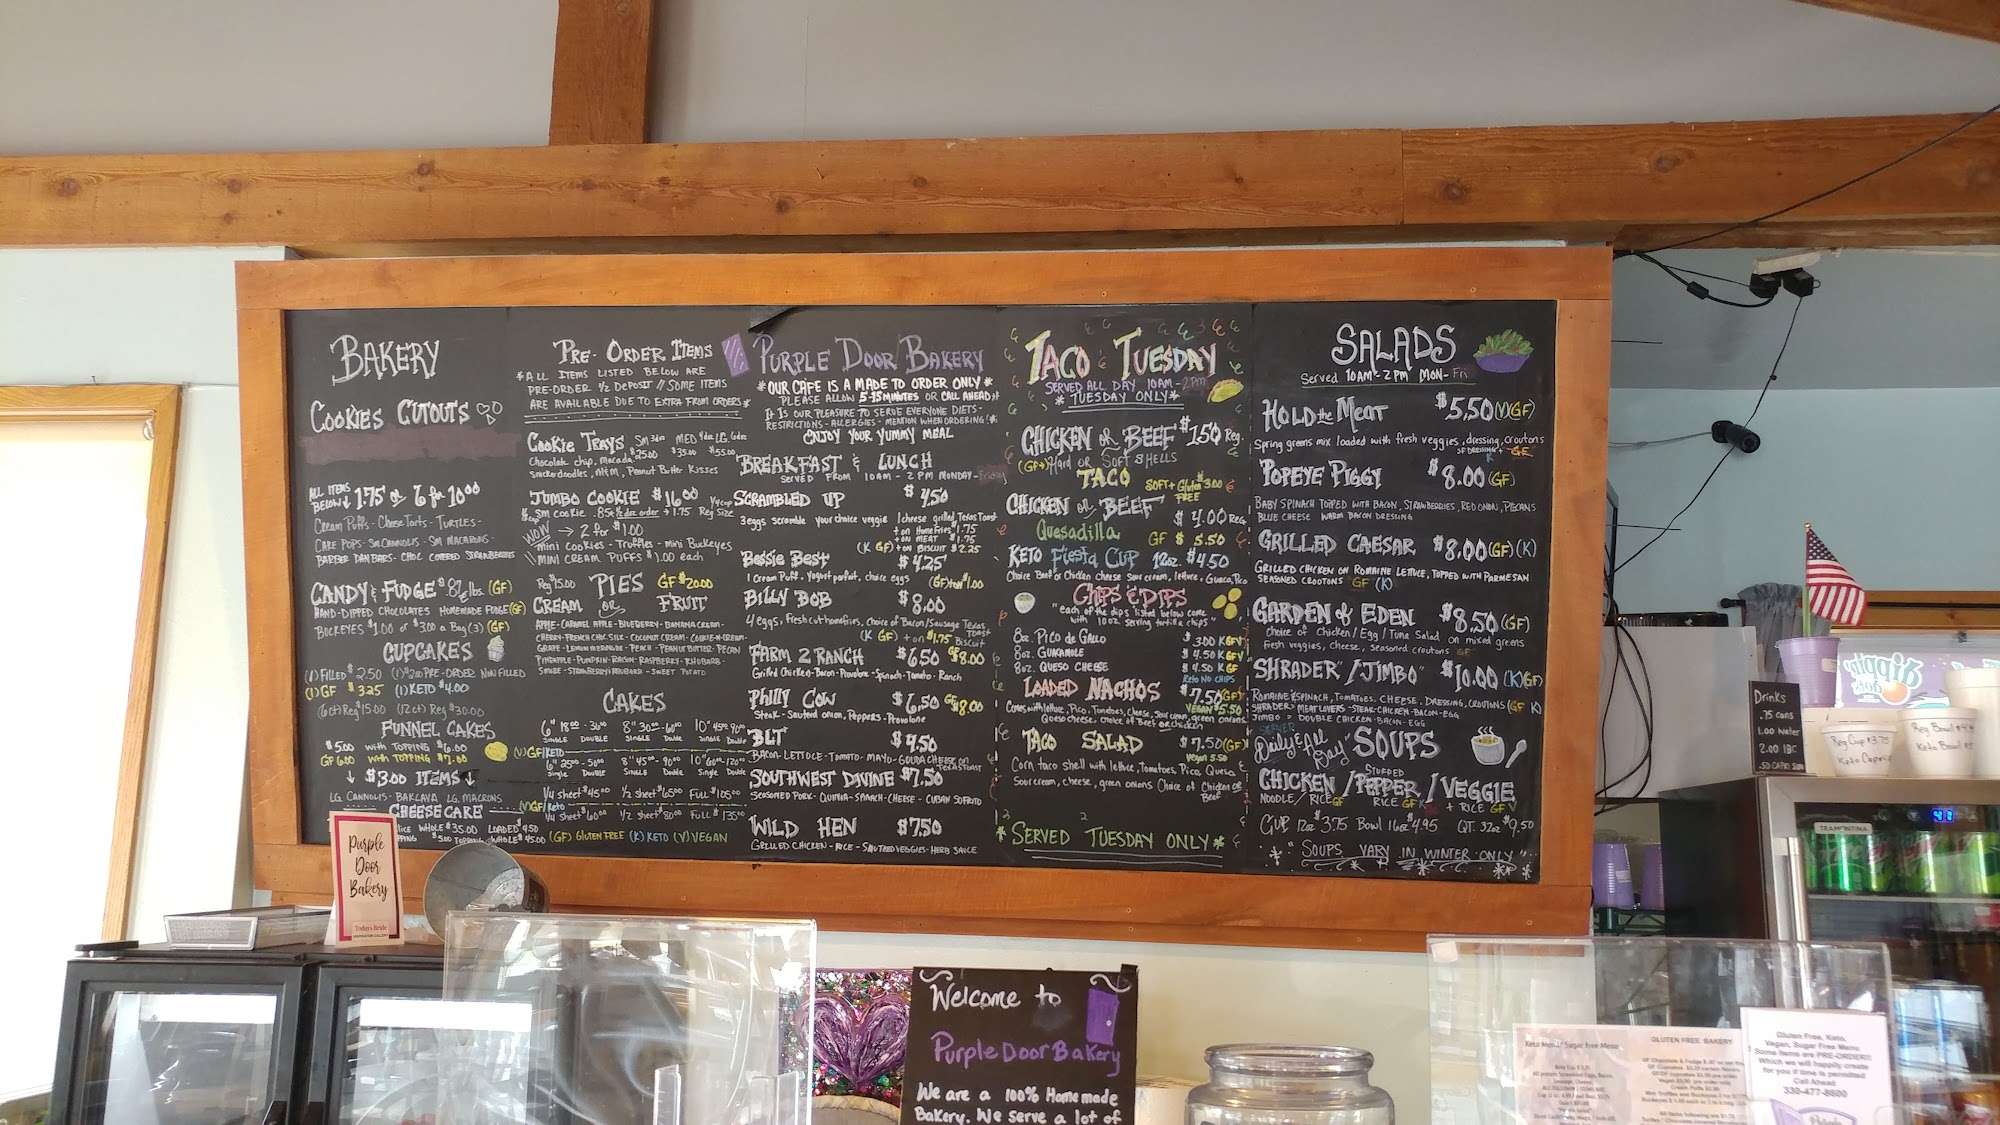 BAKERY
COOKIES CUTOUTS
ALL ITEMS
BELOW 1.75 or 6 for 10.00
CREAM PUFFS - Cheese Tarts - TURTLES -
CAKE POPS - SM CANNOLIS - SM MACARONS -
CHOC COVERED STRAWBERRIES
CANDY & FUDGE $ .87 lbs. (GF)
HAND-DIPPED CHOCOLATES HOMEMADE FUDGE (GF)
BUCKEYES $1.00 or $3.00 a Bag (3) (GF)
CUPCAKES
(1) FILLED $2.50 (1) $2.00 PRE-ORDER NON FILLED
(1) GF $3.25 (1) KETO $4.00
(6ct) Reg $15.00 (12ct) Reg $30.00
FUNNEL CAKES
$5.00 with TOPPING $6.00
GF 6.00 with TOPPING $7.00
↓ $3.00 ITEMS ↓
LG. CANNOLIS - BAKLAVA LG. MACRONS
CHEESECAKE
WHOLE $35.00 LOADED $4.50
PRE-ORDER ITEMS
*ALL ITEMS LISTED BELOW ARE
PRE-ORDER 1/2 DEPOSIT // SOME ITEMS
ARE AVAILABLE DUE TO EXTRA FROM ORDERS*
COOKIE TRAYS SM 3dz MED 4dz LG. 6dz
Chocolate chip, macada. $25.00 $35.00 $55.00
snickerdoodles, M&M, Peanut Butter Kisses
JUMBO COOKIE $16.00
SM cookie .85¢ 1/2 doz order → 1.75 Reg Size
WOW → 2 for $1.00
mini cookies - Truffles - mini Buckeyes
MINI CREAM PUFFS $1.00 each
Reg $15.00 PIES GF $20.00
CREAM OR FRUIT
APPLE - CARAMEL APPLE - BLUEBERRY - BANANA CREAM -
CHERRY - FRENCH CHIC SILK - COCONUT CREAM - COOKIE-N-CREAM -
GRAPE - LEMON MERINGUE - PEACH - PEANUT BUTTER - PECAN
PINEAPPLE - PUMPKIN - RAISIN - RASPBERRY - RHUBARB -
STRAWBERRY RHUBARB - SWEET POTATO
CAKES
6" 18.00 - 36.00 8" 30.00 - 60.00 10" 45.00 90.00
SINGLE DOUBLE SINGLE Double SINGLE Double
(V) GF/KETO
6" 25.00 - 50.00 8" 45.00 - 90.00 10" 60.00 - 120.00
Single Double SINGLE Double Single Double
1/4 sheet $45.00 1/2 sheet $65.00 FULL $105.00
(V) GF/Keto
1/4 sheet $60.00 1/2 sheet $80.00 FULL $135.00
(GF) GLUTEN FREE (K) KETO (V) VEGAN
PURPLE DOOR BAKERY
*OUR CAFE IS A MADE TO ORDER ONLY*
PLEASE ALLOW 5-15 MINUTES OR CALL AHEAD
IT IS OUR PLEASURE TO SERVE EVERYONE DIETS -
RESTRICTIONS - ALLERGIES - MENTION WHEN ORDERING
ENJOY YOUR YUMMY MEAL
BREAKFAST & LUNCH
SERVED FROM 10AM - 2 PM MONDAY - Friday
SCRAMBLED UP $4.50
3 eggs scramble your choice veggie 1 cheese grilled Texas Toast
+ on Home Fries $1.75
+ on MEAT $1.75
(K GF) + on BISCUIT $2.25
Bessie Best $4.25
1 Cream Puff - Yogurt parfait, choice eggs (GF) + on $1.00
BILLY BOB $8.00
4 eggs, Fresh cut homefries, Choice of Bacon/Sausage Texas Toast
(K GF) + on $1.75 Biscuit
FARM 2 RANCH $6.50 GF $8.00
Grilled Chicken - Bacon - Provolone - Spinach - Tomato - Ranch
PHILLY COW $6.50 GF $8.00
Steak - Sauteed onion, Peppers - Provolone
BLT $4.50
BACON - LETTUCE - TOMATO - MAYO - GOUDA CHEESE ON TEXAS TOAST
SOUTHWEST DIVINE $7.50
SEASONED PORK - QUINOA - SPINACH - CHEESE - CUBAN SOFRITO
WILD HEN $7.50
GRILLED CHICKEN - RICE - SAUTEED VEGGIES - HERB SAUCE
TACO TUESDAY
SERVED ALL DAY 10AM - 2PM
* TUESDAY ONLY *
CHICKEN OR BEEF $1.50 Reg.
(GF+) Hard OR SOFT SHELLS
TACO SOFT + Gluten FREE $3.00
CHICKEN OR BEEF $4.00 REG
Quesadilla GF $5.50
KETO Fiesta Cup 12oz $4.50
Choice Beef or Chicken cheese sour cream, lettuce, Guaca, Pico
CHIPS & DIPS
"each of the dips listed below come
with 10oz. serving tortilla chips"
8oz. PICO de GALLO $3.00 KGFV
8oz. GUACAMOLE $4.50 KGFV
8oz. QUESO CHEESE $4.50 KGF
KETO NO CHIPS
LOADED NACHOS $7.50 (GF)
VEGAN $5.50
Comes with lettuce, Pico, Tomatoes, Cheese, Sour cream, green onions
Queso cheese, choice of Beef or chicken
TACO SALAD $7.50 (GF)
Vegan 5.50
Corn taco shell with lettuce, Tomatoes, Pico, Queso
Sour cream, cheese, green onions Choice of Chicken OR
Beef
*SERVED TUESDAY ONLY*
SALADS
Served 10AM - 2 PM MON - Fri
HOLD the MEAT $5.50 (V) (GF)
Spring greens mix loaded with fresh veggies, dressing, croutons
POPEYE PIGGY $8.00 (GF)
BABY SPINACH TOPPED WITH BACON, STRAWBERRIES, RED ONION, PECANS
BLUE CHEESE WARM BACON DRESSING
GRILLED CAESAR $8.00 (GF) (K)
GRILLED CHICKEN ON ROMAINE LETTUCE, TOPPED WITH PARMESAN
SEASONED CROUTONS GF (K)
GARDEN of EDEN $8.50 (GF)
choice of Chicken / Egg / Tuna Salad on mixed greens
fresh veggies, cheese, Seasoned croutons GF
SHRADER"/JIMBO" $10.00 (K)(GF)
ROMAINE & SPINACH, TOMATOES, CHEESE, DRESSING, CROUTONS (GF K)
SHRADER = MEAT LOVERS - STEAK - CHICKEN - BACON - EGG
JIMBO = DOUBLE CHICKEN - BACON - EGG
SERVED
Daily & All Day" SOUPS
STUFFED
CHICKEN / PEPPER / VEGGIE
NOODLE / RICE GF RICE GF K + RICE GF V
CUP 12oz $3.75 Bowl 16oz $4.95 QT. 32oz $9.50
"SOUPS VARY IN WINTER ONLY"
Drinks
.75 cans
1.00 water
2.00 IBC
.50 CAPRI
Reg Cup $3.75
Keto
Reg Bowl
Keto Bowl
dippin'
dots
TRAMONTINA
41
Purple
Door
Bakery
Today's Bride
Welcome to
Purple Door Bakery
We are a 100% Homemade
Bakery. We serve a lot of
Keto Menu/ Sugar Free Menu
GLUTEN FREE BAKERY
Gluten Free, Keto,
Vegan, Sugar Free Menu
Some Items are PRE-ORDER!!
Which we will happily create
for you if time is permitted
Call Ahead
330-477-8600